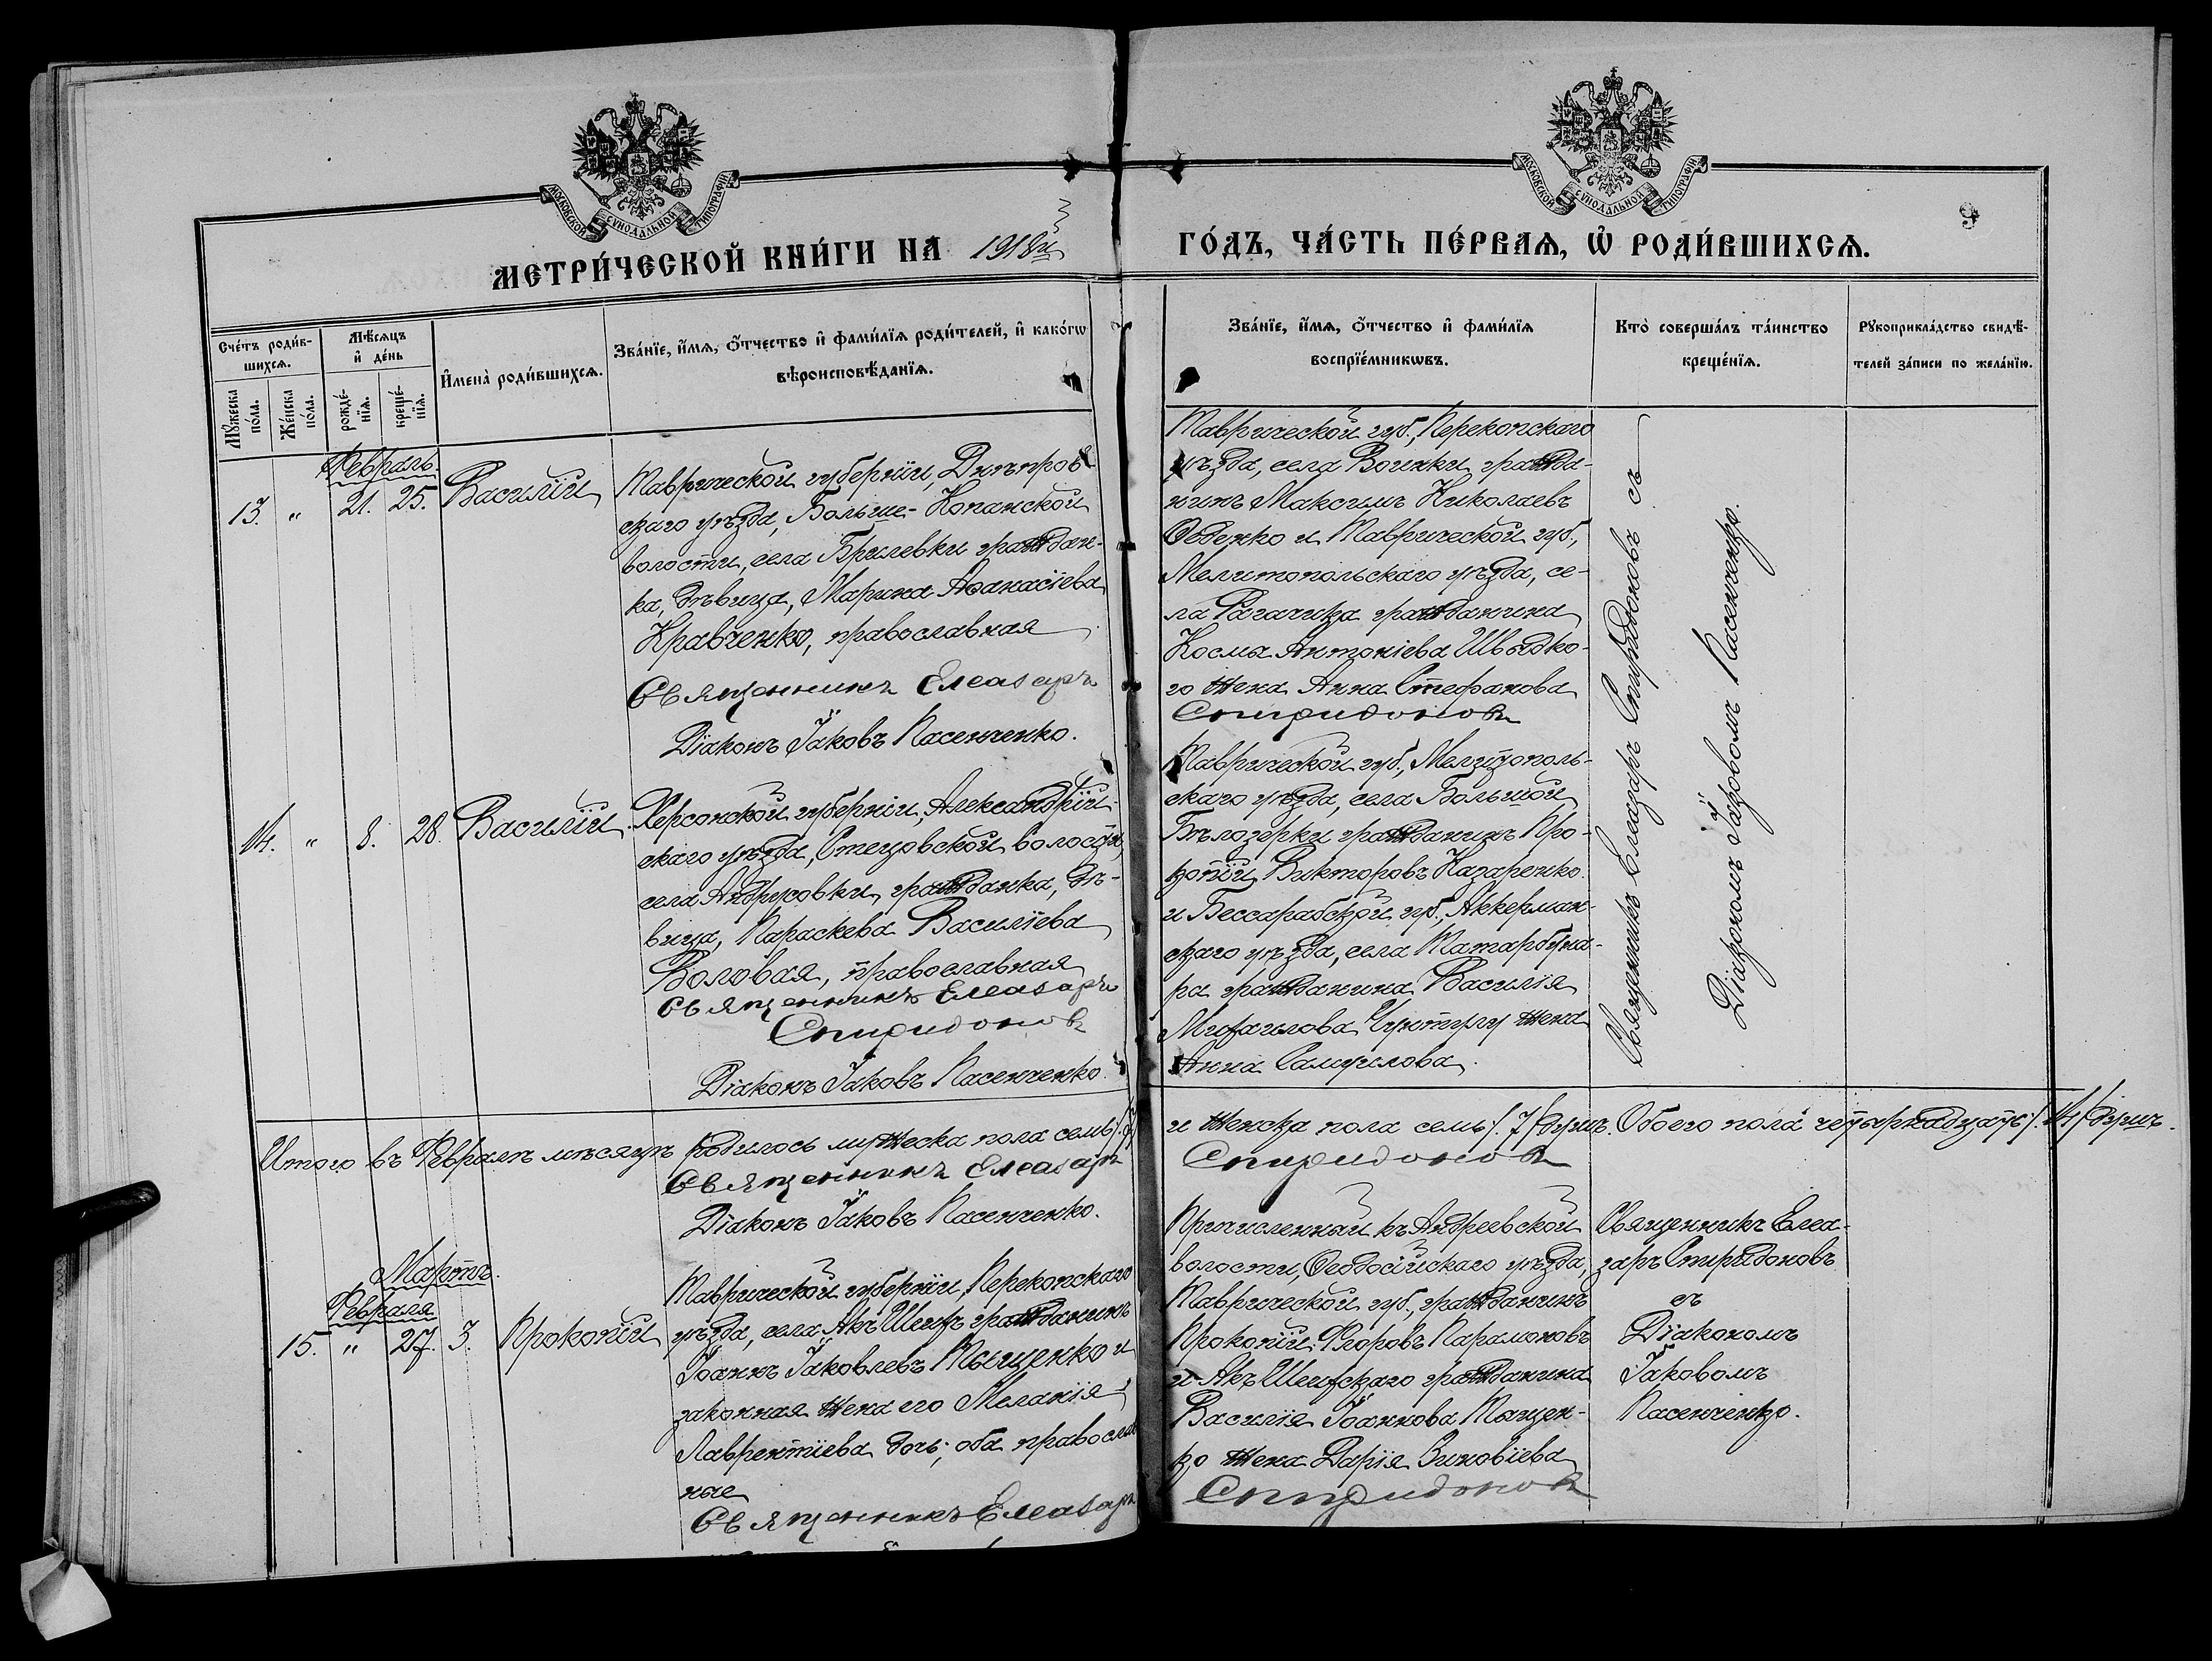 МОСКОВСКОЙ СѴНОДАЛЬНОЙ ТИПОГРАФІИ
МОСКОВСКОЙ СѴНОДАЛЬНОЙ ТИПОГРАФІИ
9
МЕТРИ́ЧЕСКОЙ КНИ́ГИ НА 1918й
ГО́ДЪ, ЧА́СТЬ ПЕ́РВАѦ, Ѡ҆ РОДИ́ВШИХСѦ.
Сче́тъ роди́в-
шихсѧ.
Мꙋ́жеска
по́ла.
Же́нска
по́ла.
Мѣ́сѧцъ
и҆ де́нь
рожде́-
нїѧ.
креще́-
нїѧ.
И҆мена̀ роди́вшихсѧ.
Зва́нїе, и҆́мѧ, ѻ҆́тчество и҆ фами́лїѧ роди́телей, и҆ како́гѡ
вѣроисповѣ́данїѧ.
Зва́нїе, и҆́мѧ, ѻ҆́тчество и҆ фами́лїѧ
воспрїе́мникѡвъ.
Кто̀ соверша́лъ та́инство
креще́нїѧ.
Рꙋкоприкла́дство свидѣ́-
телей за́писи по жела́нїю.
Февраль.
13. " 21. 25. Василій
Таврической губерніи, Днѣпров-
скаго уѣзда, Больше-Копанской
волости, села Брилевки граждан-
ка, дѣвица, Марина Аѳанасіева
Кравченко, православная
Священникъ Елеазаръ
Діаконъ Іаковъ Пасенченко.
Таврической губ., Перекопскаго
уѣзда, села Воинки, гражда-
нинъ Максимъ Николаевъ
Овденко и Таврической губ.,
Мелитопольскаго уѣзда, се-
ла Рогачика гражданина
Космы Антоніева Швыдко-
го жена Анна Стефанова
Спиридоновъ
Священникъ Елеазаръ Спиридоновъ съ
Діакономъ Іаковомъ Пасенченко.
14. " 8. 28. Василій.
Херсонской губерніи, Александрій-
скаго уѣзда, Стецовской волости,
села Андрусовки, гражданка, дѣ-
вица, Параскева Василіева
Воловая, православная
Священникъ Елеазаръ
Спиридоновъ
Діаконъ Іаковъ Пасенченко.
Таврической губ., Мелитополь-
скаго уѣзда, села Большой
Бѣлозерки гражданинъ Про-
копій Викторовъ Назаренко.
и Бессарабской губ., Аккерман-
скаго уѣзда, села Татарбуна-
ра гражданина Василія
Михаилова жена
Анна Самуилова.
Итого въ Февралѣ мѣсяцѣ родилось мужеска пола семь /.7/
и женска пола семь /.7/ душъ. Обоего пола четырнадцать /.14/ душъ.
Священникъ Елеазаръ
Спиридоновъ
Діаконъ Іаковъ Пасенченко.
Мартъ.
Февраля
15. " 27. 3. Прокопій
Таврической губерніи, Перекопскаго
уѣзда, села Акъ Шеихъ гражданинъ
Іоаннъ Іаковлевъ и
законная жена его Меланія
Лаврентіева дочь; оба православ-
ные
Священникъ Елеазаръ
Причисленный къ Андреевской
волости, Ѳеодосійскаго уѣзда,
Таврической губ., гражданинъ
Прокопій Ѳеоровъ Парамоновъ
и Акъ Шеихскаго гражданина
Василія Іоаннова Тыщен-
ко жена Дарія Зиновіева
Спиридоновъ
Священникъ Елеа-
заръ Спиридоновъ
съ
Діакономъ
Іаковомъ
Пасенченко.